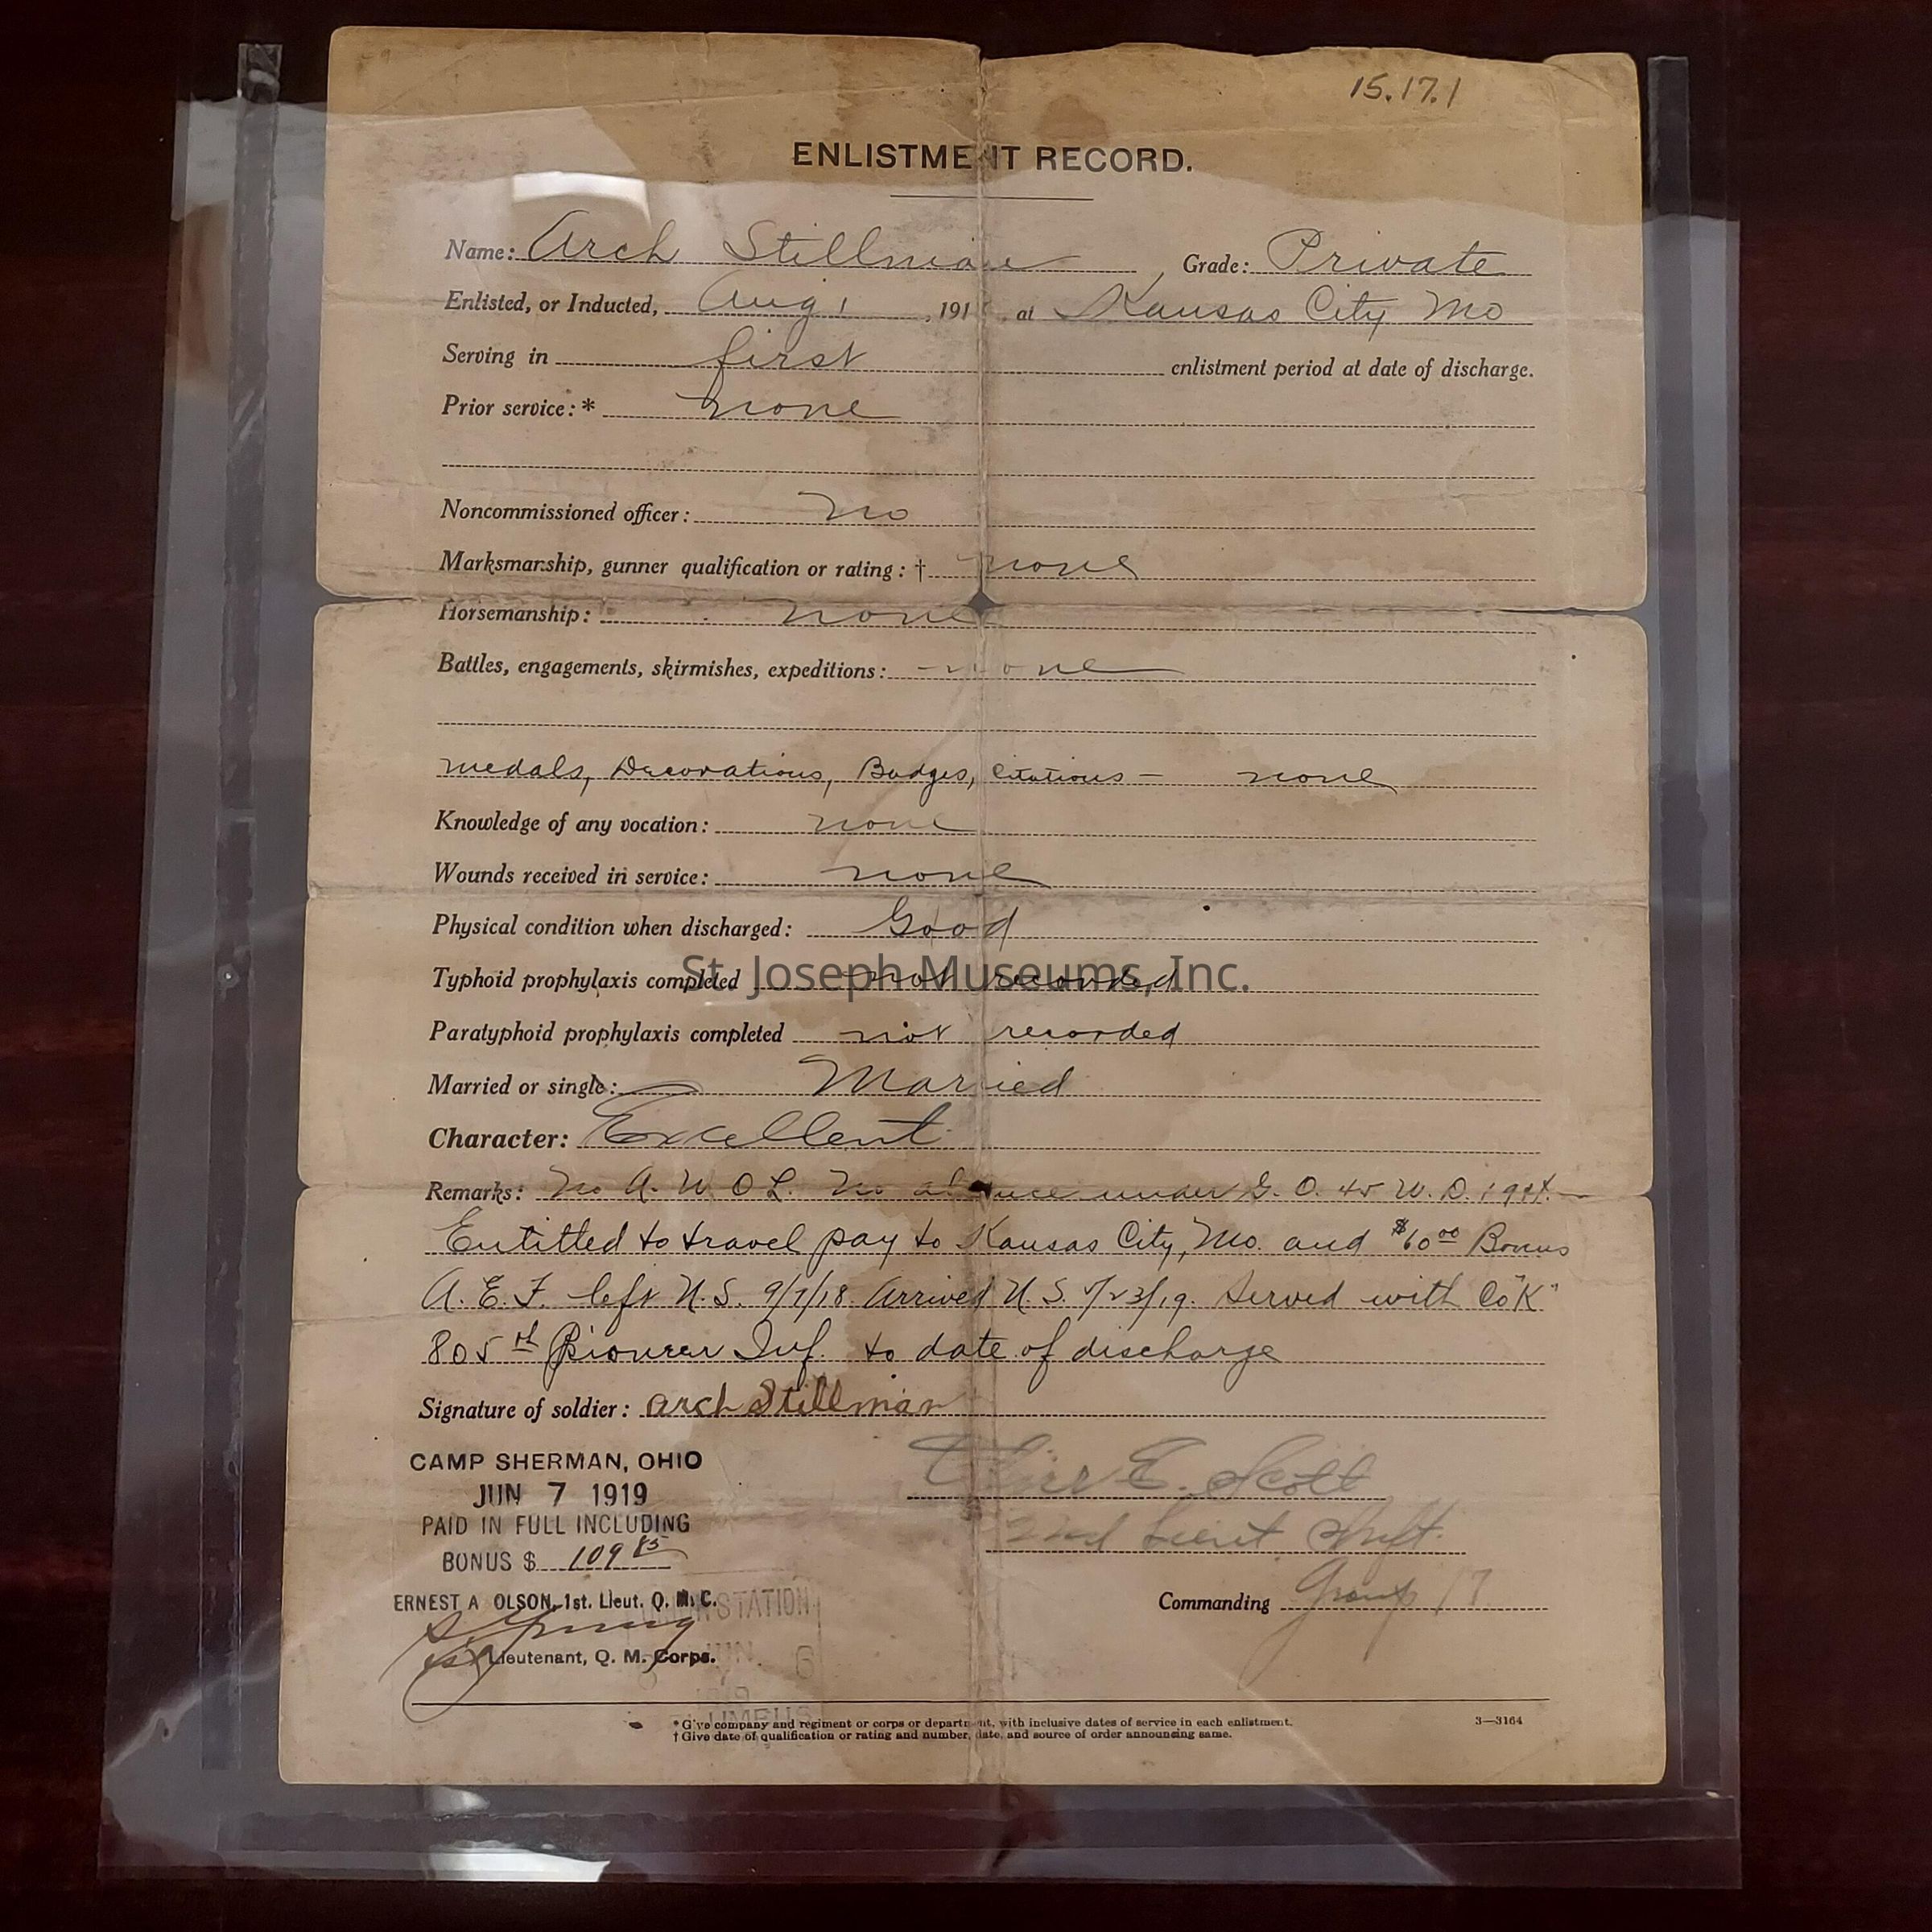 15.17.1
ENLISTMENT RECORD.
Name: Arch Stillman, Grade: Private
Enlisted, or Inducted, Aug 1, 191 at Kansas City Mo
Serving in first enlistment period at date of discharge.
Prior service:* none
Noncommissioned officer: no
Marksmanship, gunner qualification or rating: † none
Horsemanship: none
Battles, engagements, skirmishes, expeditions: none
Medals, Decorations, Badges, Citations – none
Knowledge of any vocation: none
Wounds received in service: none
Physical condition when discharged: Good
Typhoid prophylaxis completed not recorded
St. Joseph Museums, Inc.
Paratyphoid prophylaxis completed not recorded
Married or single: Married
Character: Excellent
Remarks: No A.W.O.L. No absence under G.O. 45 W.D.
Entitled to travel pay to Kansas City, Mo. and $60.00 Bonus
A.E.F. left U.S. Arrived U.S. Served with Co "K"
805th Pioneer Inf. to date of discharge
Signature of soldier: Arch Stillman
CAMP SHERMAN, OHIO
JUN 7 1919
PAID IN FULL INCLUDING
BONUS $ 109 85
ERNEST A OLSON, 1st. Lieut. Q. M. C.
1st Lieutenant, Q. M. Corps.
E. Scott
2nd Lieut
Commanding Group 17
STATION
JUN. 6
*Give company and regiment or corps or department, with inclusive dates of service in each enlistment.
†Give date of qualification or rating and number, date, and source of order announcing same.
3—3164